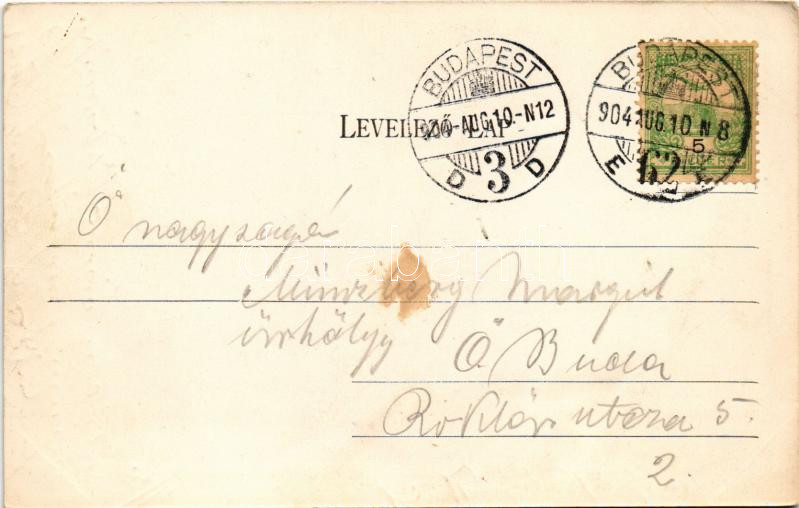 BUDAPEST
904 AUG. 10.-N12
D 3 D
BUDAPEST
904 AUG. 10 N 8
E 62
5
LEVELEZŐ-LAP
Ő nagysága
Münzberg Margit
úrhölgy
Ó Buda
utcza 5.
2.